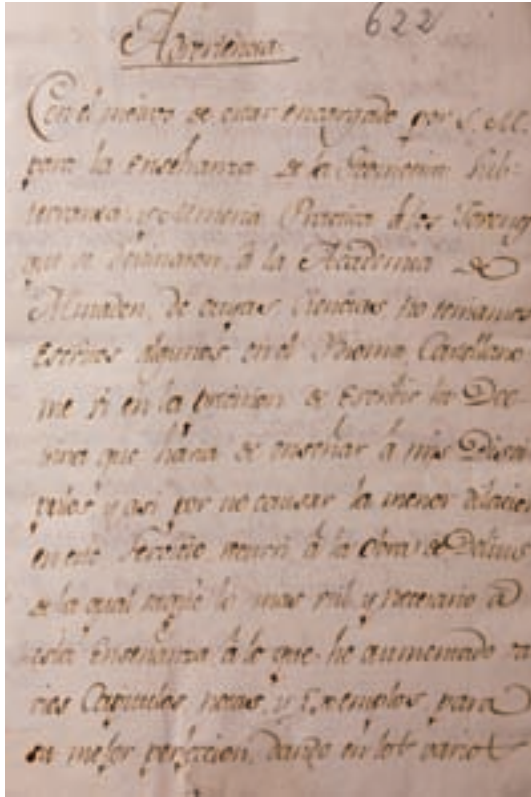 622
Advertencia.
Con el motivo de estar encargado por S. M.
para la Enseñanza de la Geometria Sub-
terranea, y Mineria Practica â los Jovenes
que se destinaron â la Academia de
Almaden, de cuyas Ciencias no teniamos
Escritos algunos en el Ydioma Castellano,
me vi en la precision de Escribir la Doc-
trina que havia de enseñar â mis Disci-
pulos y asi por no causar la menor dilacion
en este Servicio recurri â la obra de Delius
de la qual saque lo mas util y necesario â
esta Enseñanza â lo que he aumentado va-
rios Capitulos, notas, y Exemplos, para
su mejor perfeccion, dando en los varios